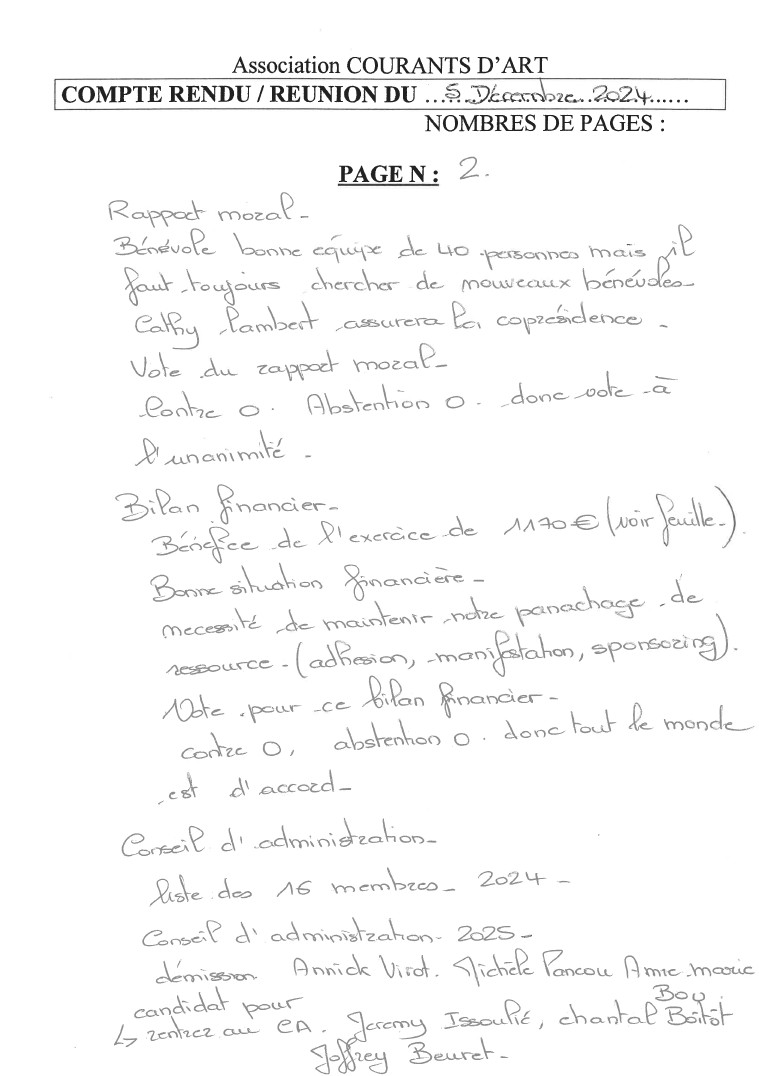 Association COURANTS D'ART
COMPTE RENDU / REUNION DU ...5. Décembre..2024......
NOMBRES DE PAGES :
PAGE N : 2.
Rapport moral-
Bénévole bonne équipe de 40 personnes mais il
faut toujours chercher de nouveaux bénévoles-
Cathy Lambert assurera la coprésidence -
Vote du rapport moral-
Contre 0. Abstention 0. donc vote à
l'unanimité -
Bilan financier-
Bénéfice de l'exercice de 1170€ (voir feuille-).
Bonne situation financière-
necessité de maintenir notre panachage de
ressource-(adhesion, manifstation, sponsoring).
Vote pour ce bilan financier-
contre 0, abstention 0. donc tout le monde
est d'accord-
Conseil d'administration-
liste des 16 membres- 2024 -
Conseil d'administration- 2025-
démission Annick Virot. Michèle Pancou Anne-marie
Bou.
candidat pour
↳ rentrer au CA. Jeremy Issoulié, chantal Boitôt
Joffrey Beuret-